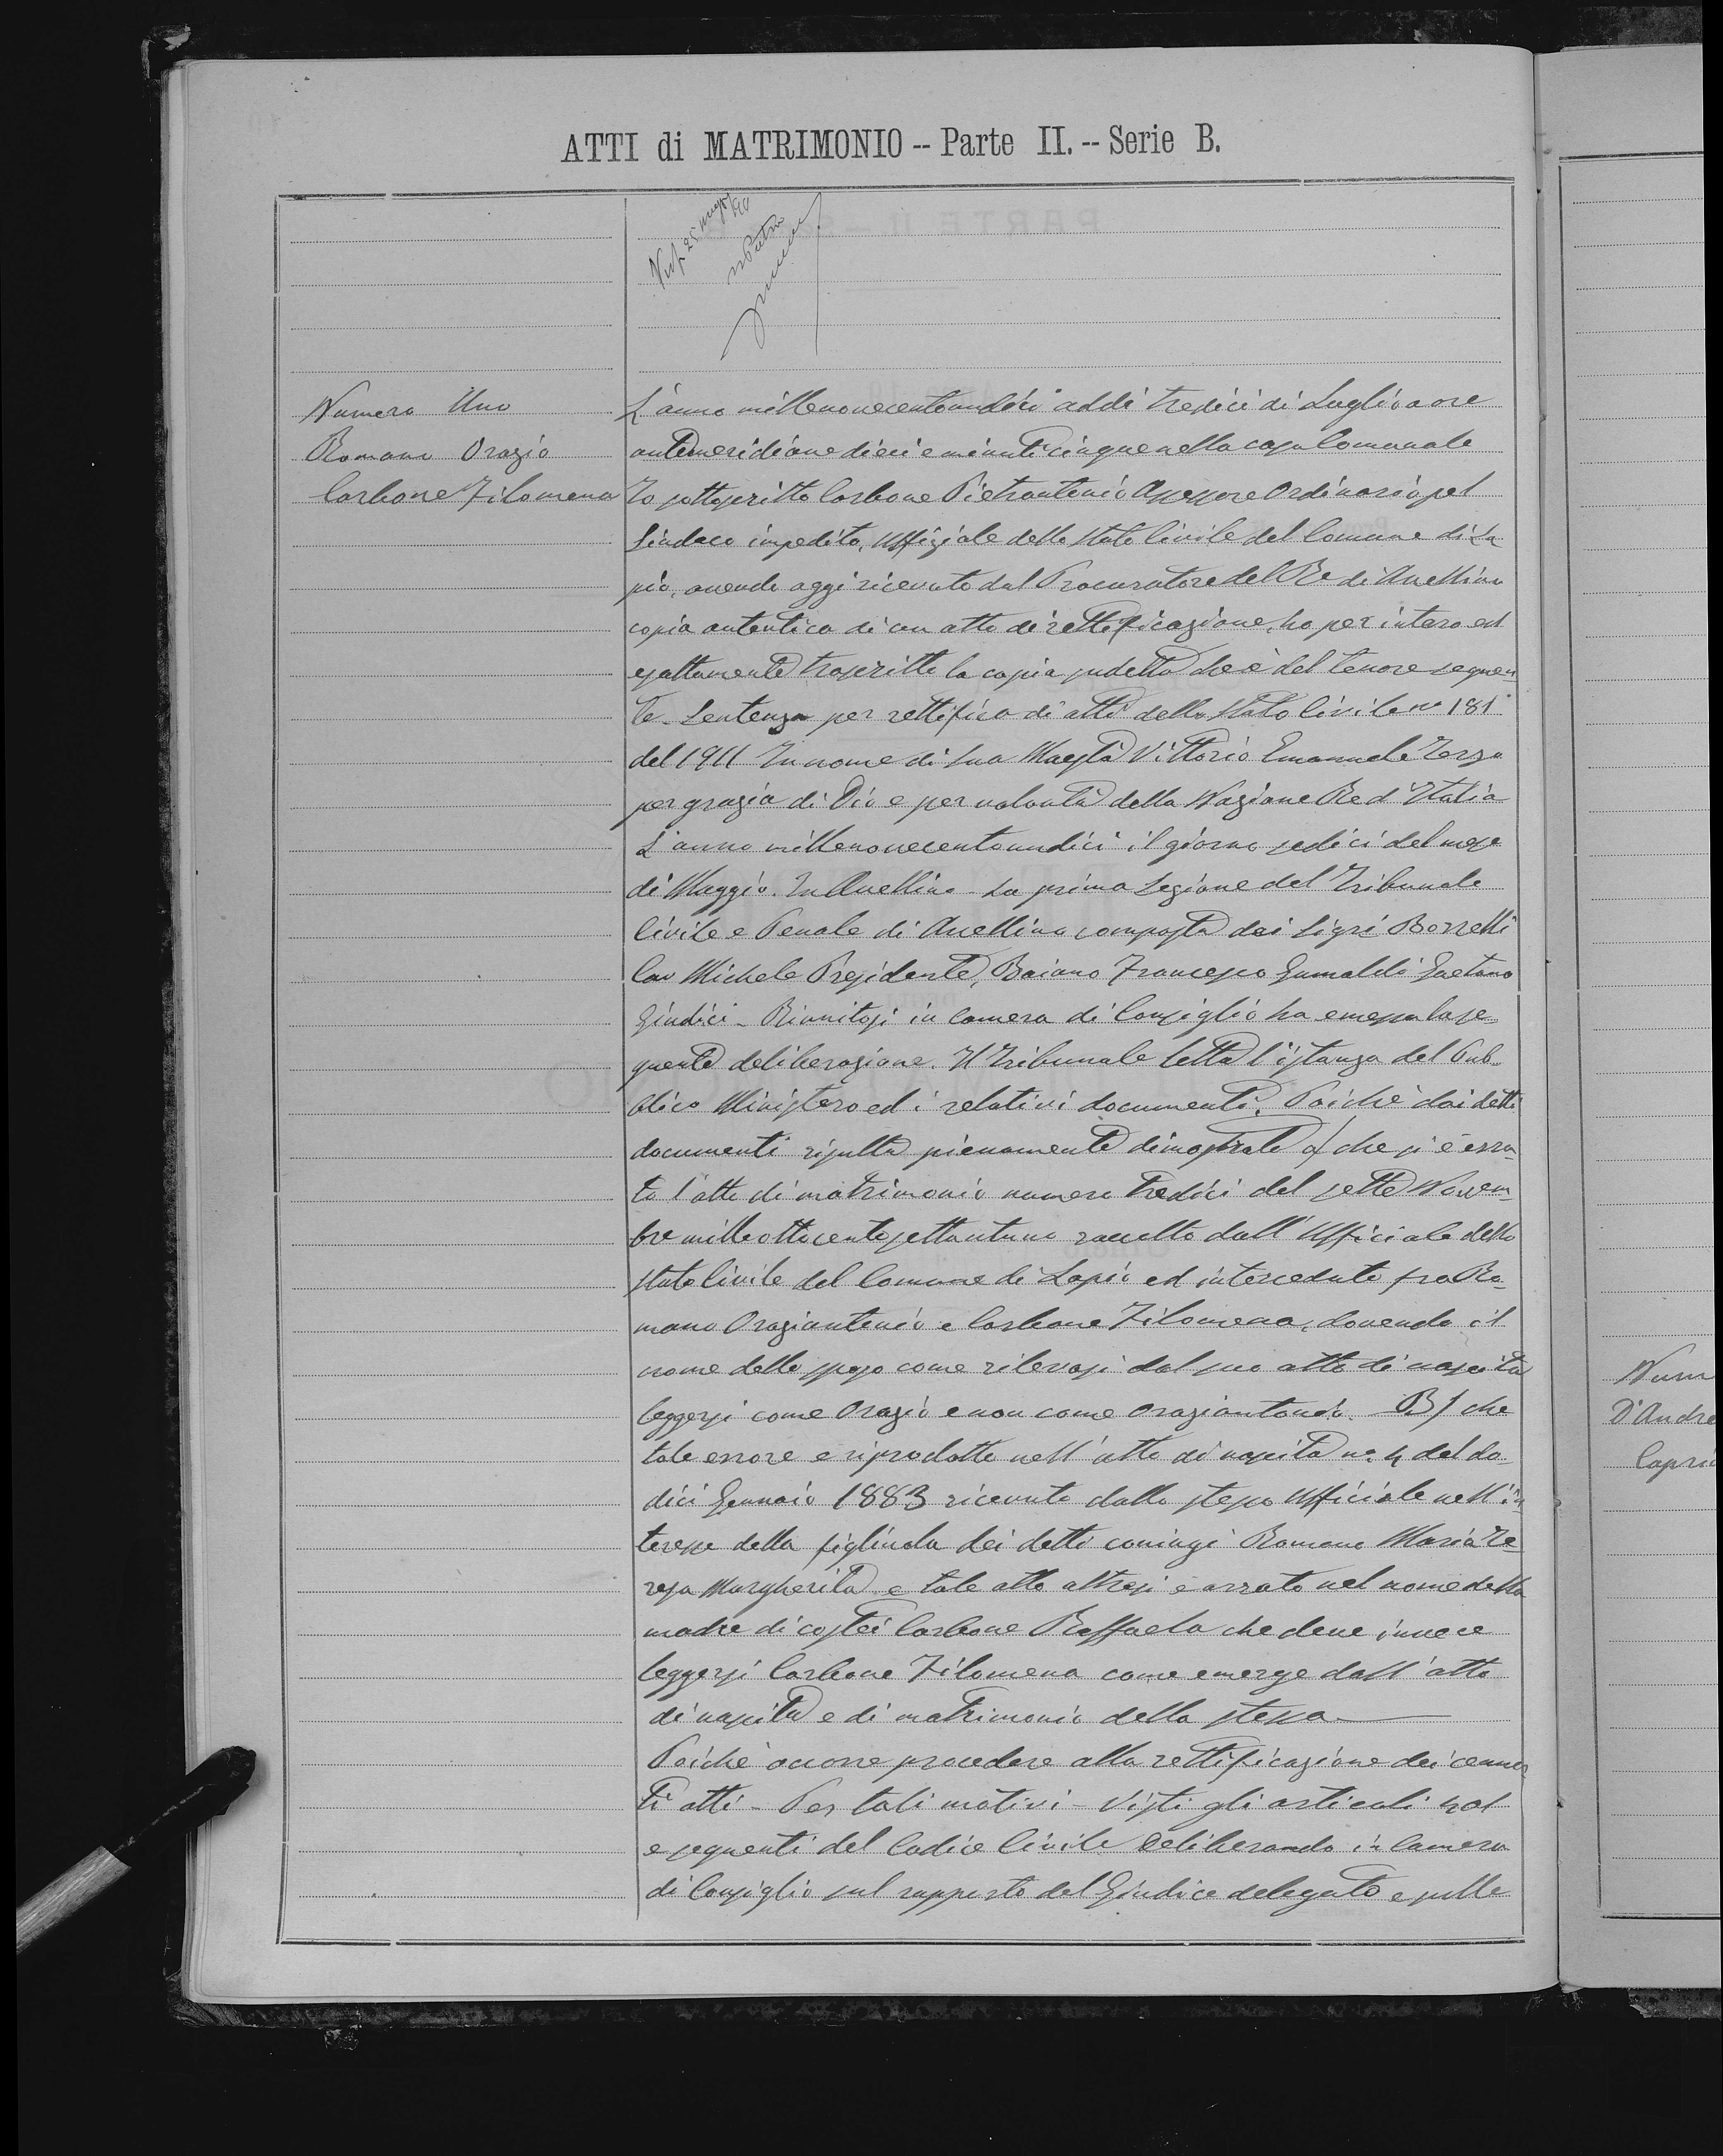 ATTI di MATRIMONIO -- Parte II. -- Serie B.
Numero Uno
Romano Orazio
Carbone Filomena
L'anno millenovecentoundici addì tredici di Luglio a ore
antemeridiane dieci e minuti cinque nella casa Comunale
Io sottoscritto Carbone Pietrantonio Assessore Ordinario pel
Sindaco impedito, Uffiziale dello Stato Civile del Comune di La
pio, avendo oggi ricevuto dal Procuratore del Re di Avellino
copia autentica di un atto di rettificazione, ho per intero ed
esattamente trascritto la copia sudetta che è del tenore seguen
te - Sentenza per rettifica di atti dello Stato Civile n° 181
del 1911 In nome di Sua Maestà Vittorio Emanuele Terzo
per grazia di Dio e per volontà della Nazione Re d'Italia
L'anno millenovecentoundici il giorno sedici del mese
di Maggio. In Avellino - La prima Sezione del Tribunale
Civile e Penale di Avellino composta dai Sigri Borrelli
Cav Michele Presidente, Baiano Francesco Grimaldi Gaetano
Giudici - Riunitosi in Camera di Consiglio ha emessa la se
guente deliberazione. Il Tribunale letta l'istanza del Pub-
blico Ministero ed i relativi documenti. Poichè dai detti
documenti risulta pienamente dimostrato A) che si è erra-
to l'atto di matrimonio numero tredici del sette Novem-
bre milleottocentosettantuno raccolto dall'Ufficiale dello
Stato Civile del Comune di Lapio ed interceduto fra Ro-
mano Oraziantonio e Carbone Filomena, dovendo il
nome dello sposo come rilevasi dal suo atto di nascita
leggersi come Orazio e non come Oraziantonio. B) che
tale errore è riprodotto nell'atto di nascita n° 4 del do
dici Gennaio 1883 ricevuto dallo stesso Ufficiale nell'in
teresse della figliuola dei detti coniugi Romano Maria Te-
resa Margherita e tale atto altresì è errato nel nome della
madre di costei Carbone Raffaela che deve invece
leggersi Carbone Filomena come emerge dall'atto
di nascita e di matrimonio della stessa
Poichè occorre procedere alla rettificazione dei cenna
ti atti - Per tali motivi - Visti gli articoli 401
e seguenti del Codice Civile Deliberando in Camera
di Consiglio sul rapporto del Giudice delegato e sulle
Num
D'Andre
Capri